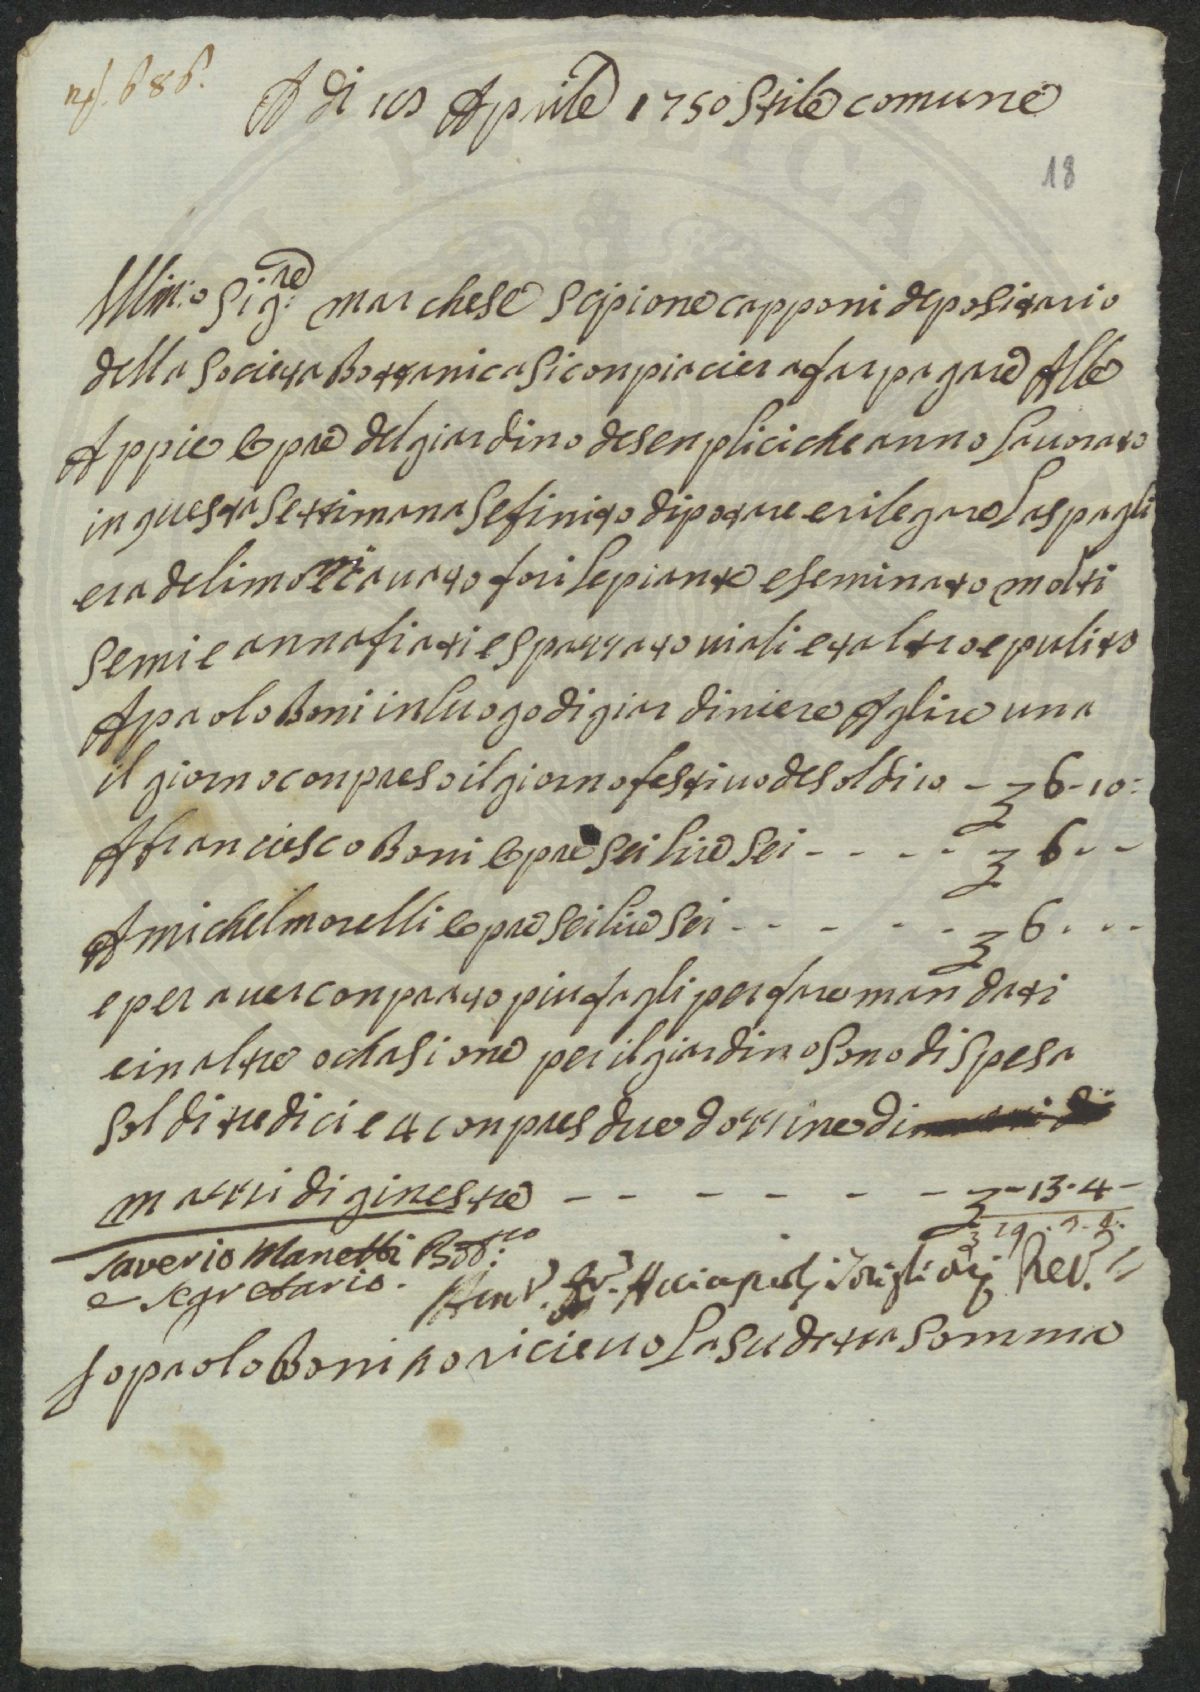 n°. 686.
A di 10 Aprile 1750 Stile comune
18
Illm:o Sig:re marchese Scipione capponi depositario
della Societa Bottanica Si conpiaciera far pagare Alle
Appie epre del giardino de senplici che anno Lavorato
in questa Settimana Se finito di potare e rilegare La spagli
era de limoni cavato fori le piante e seminato molti
Semi e annafiati e spazzato viali et altro e pulito
A paolo Boni in luogo di giardiniere A glire una
il giorno conpreso il giorno festivo de soldi 10 - 6-10:
A franciesco Boni opre Sei lire Sei - - - - 6 - -
A michel morelli opre Sei lire Sei - - - - - 6 - - -
e per aver conprato piu fogli per fare mandati
e in altre ochasione per il giardino sono di spesa
Soldi tredici e 4 conpres due dozzine di
mazzi di ginestre - - - - - - - 13-4-
Saverio Manetti Bott:co
e Segretario.
Rev.
Io paolo Boni o ricievo La sudetta Somma